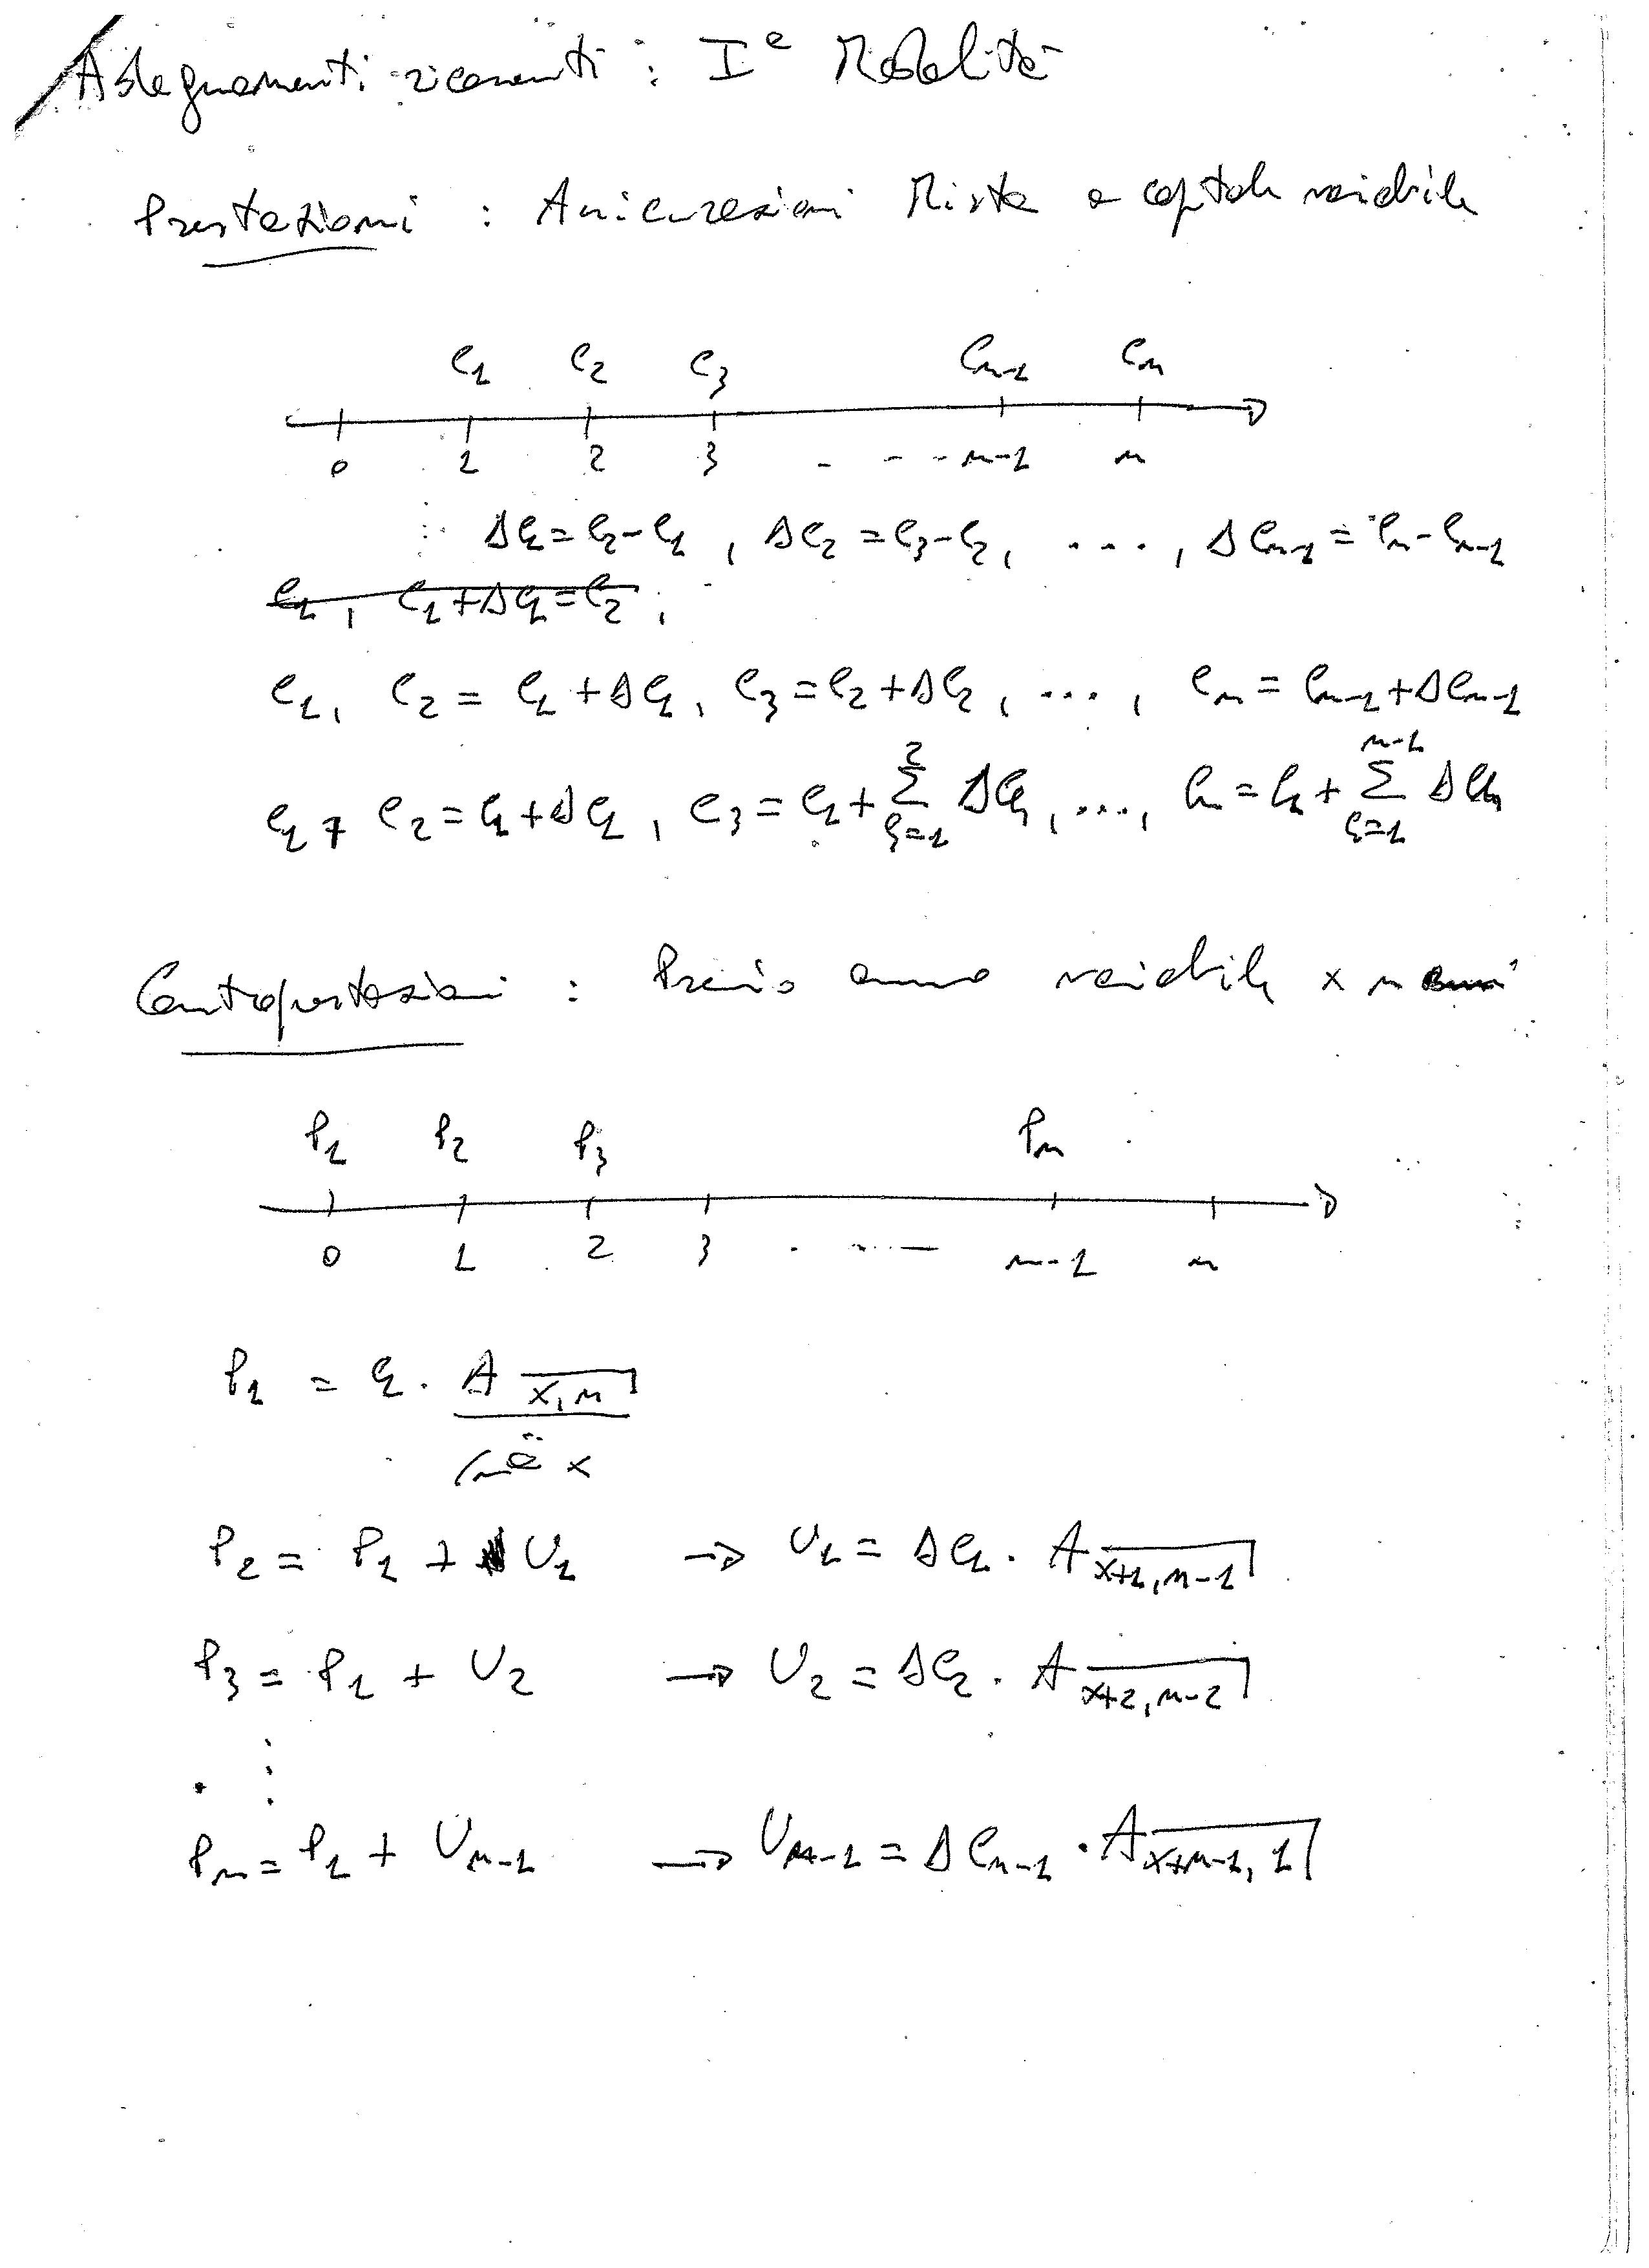 Adeguamenti ricorrenti : Iª Modalità
Prestazioni : Assicurazioni Mista a capitale variabile
C₁ C₂ C₃ Cₙ₋₁ Cₙ
0 1 2 3 . - - - n-1 n
ΔC₁ = C₂ - C₁ , ΔC₂ = C₃ - C₂ , ... , ΔCₙ₋₁ = Cₙ - Cₙ₋₁
C₁ , C₁ + ΔC₁ = C₂ ,
C₁ , C₂ = C₁ + ΔC₁ , C₃ = C₂ + ΔC₂ , ... , Cₙ = Cₙ₋₁ + ΔCₙ₋₁
C₁ , C₂ = C₁ + ΔC₁ , C₃ = C₁ + Σ_{h=1}^{2} ΔCₕ , ... , Cₙ = C₁ + Σ_{h=1}^{n-1} ΔCₕ
Controprestazioni : Premio annuo variabile x n anni
P₁ P₂ P₃ Pₙ
0 1 2 3 . ... — n-1 n
P₁ = C₁ · A x,n⌉
/ₙä x
P₂ = P₁ + U₁ → U₁ = ΔC₁ · A x+1,n-1⌉
P₃ = P₁ + U₂ → U₂ = ΔC₂ · A x+2,n-2⌉
⋮
Pₙ = P₁ + Uₙ₋₁ → Uₙ₋₁ = ΔCₙ₋₁ · A x+n-1,1⌉